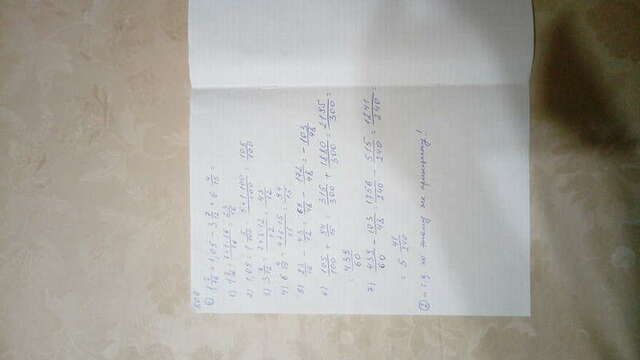 ① 1 7/16 + 1,05 - 3 7/12 + 6 4/15 =
1) 1 7/16 = 7+1·16/16 = 23/16
2) 1,05 = 1 5/100 = 5+1·100/100 = 105/100
3) 3 7/12 = 7+3·12/12 = 43/12
4) 6 4/15 = 4+6·15/15 = 94/15
5) 23/16 - 43/12 = 69/48 - 172/48 = - 103/48
6) 105/100 + 94/15 = 315/300 + 1880/300 = 2195/300 =
= 439/60
7) 439/60 - 103/48 = 1756/240 - 515/240 = 1241/240 =
= 5 41/240
② и т.д по этому же принципу!